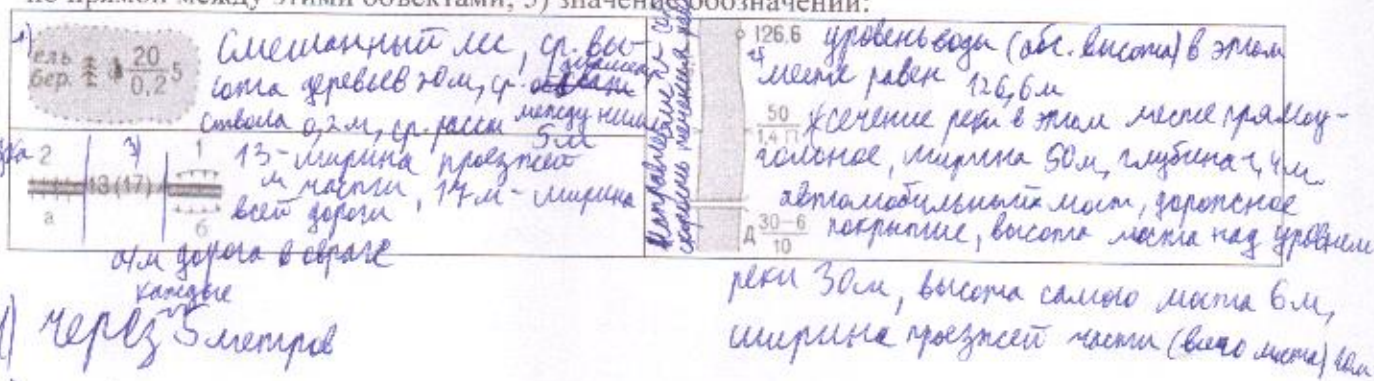 но прямой между этими объектами, 3) значение обозначений:
ель
бер.
20
0,2
5
Смешанный лес, ср. вы-
сота деревьев 20м, ср. диаметр
ствола 0,2м, ср. расст между ними
5м
2
3)
1
13(17)
а
б
13 - ширина проезжей
м части, 17м - ширина
всей дороги
а/м дорога в овраге
каждые
через 5 метров
126,6
уровень воды (абс. высота) в этом
месте равен 126,6м
50
1,4 П
сечение реки в этом месте прямоу-
гольное, ширина 50м, глубина 1,4м
автомобильный мост, дорожное
Д 30-6
10
покрытие, высота моста над уровнем
реки 30м, высота самого моста 6м,
ширина проезжей части (всего моста)